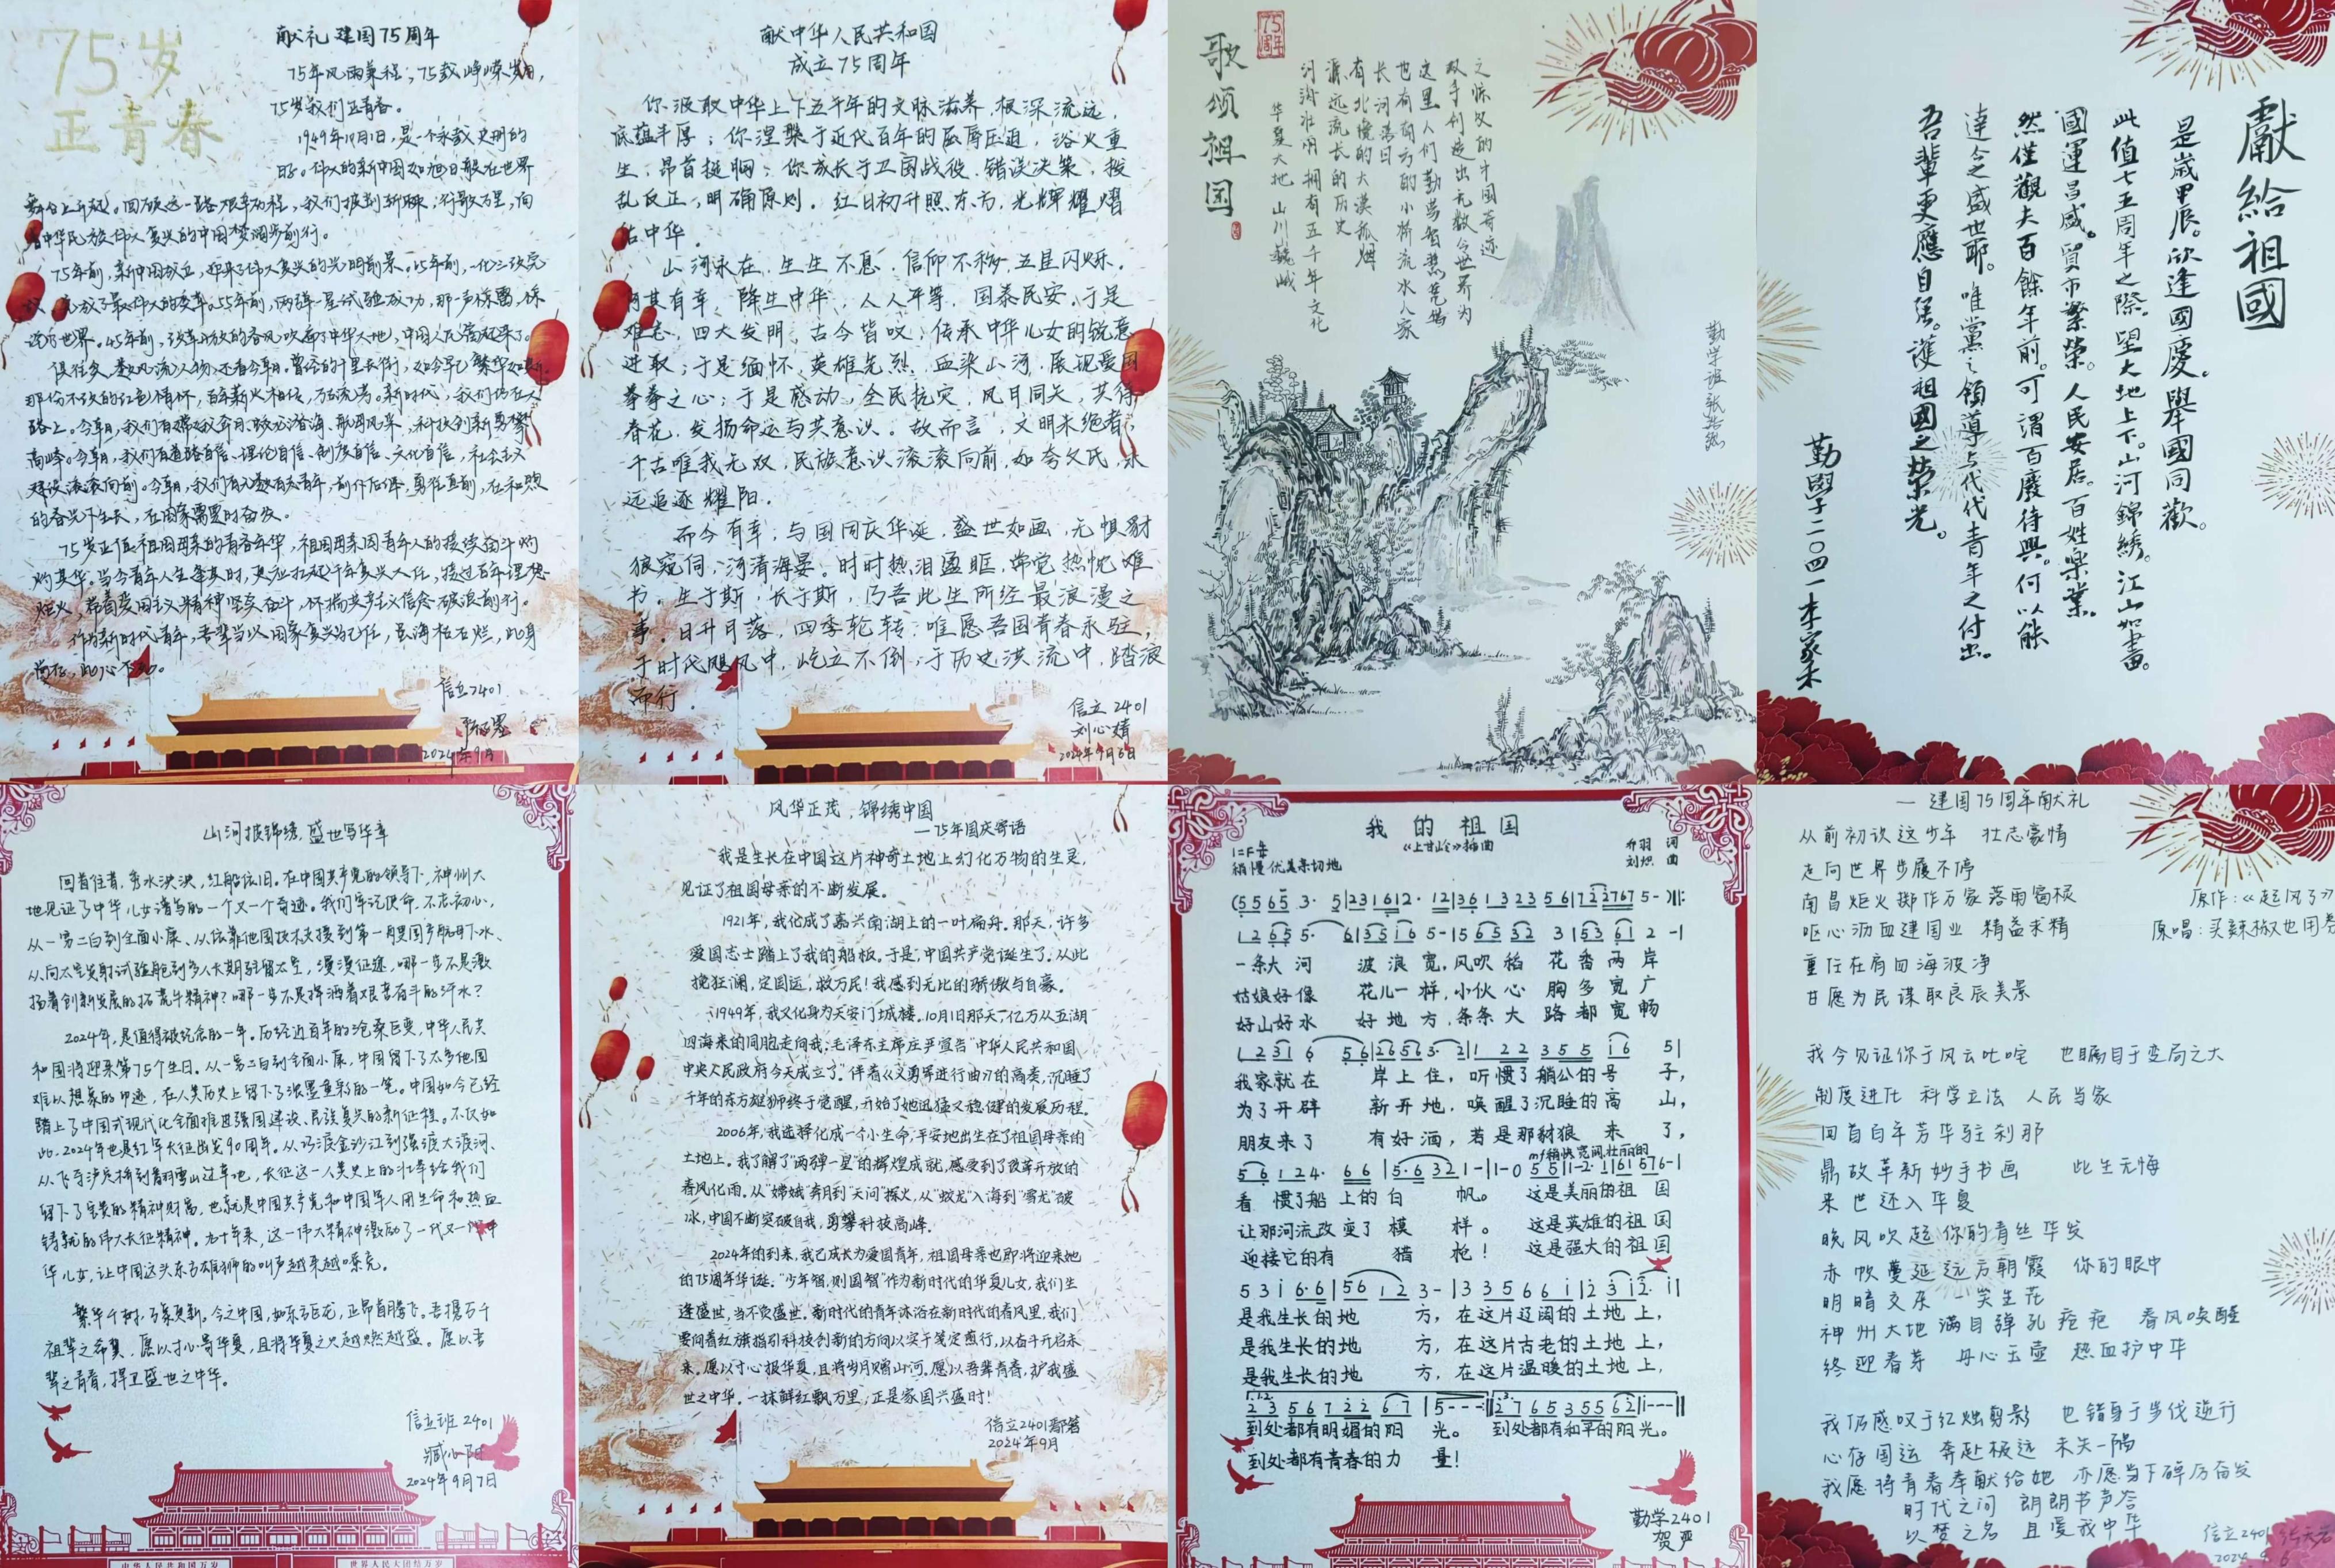 75岁
正青春
献礼建国75周年
75年风雨兼程，75载峥嵘岁月，
75岁我们正青春。
1949年10月1日，是一个永载史册的
日子。伟大的新中国如旭日般在世界
舞台上升起。回顾这一路艰辛历程，我们披荆斩棘；行歌万里，向
着中华民族伟大复兴的中国梦阔步前行。
75年前，新中国成立，迎来了伟大复兴的光明前景。
完成了最伟大的变革。55年前，两弹一星试验成功，那一声惊雷，惊
45年前，改革开放的春风吹遍了中华大地，中国人民富起来了。
俱往矣，数风流人物，还看今朝。曾经的十里长街，如今早已繁华如新。
那份不改的红色情怀，百年薪火相传，万古流芳。新时代，我们仍在大
路上。今朝，我们有嫦娥奔月、蛟龙潜海、科技创新勇攀
高峰。今朝，我们有道路自信、理论自信、制度自信、文化自信，社会主义
建设滚滚向前。今朝，我们有无数有志青年，前仆后继，勇往直前，在和煦
的春光下生长，在国家需要时奋发。
75岁正值祖国母亲的青春年华，祖国母亲因青年人的接续奋斗灼
灼其华。当今青年人生逢其时，更应扛起千年复兴大任，接过百年理想
炬火，带着爱国主义精神坚实奋斗，怀揣共产主义信念破浪前行。
作为新时代青年，吾辈当以国家复兴为己任，虽海枯石烂，此身
尚在，此心不改。
信立2401
2024年9月
献中华人民共和国
成立75周年
你汲取中华上下五千年的文脉滋养，根深流远，
底蕴丰厚；你涅槃于近代百年的屈辱压迫，浴火重
生，昂首挺胸；你成长于卫国战役，错误决策，拨
乱反正，明确原则。红日初升照东方，光辉耀熠
佑中华。
山河永在，生生不息，信仰不移，五星闪烁。
何其有幸，降生中华，人人平等，国泰民安，于是
难忘，四大发明，古今皆叹，传承中华儿女的锐意
进取；于是缅怀，英雄先烈，血染山河，展现爱国
拳拳之心；于是感动，全民抗灾，风月同天，共待
春花，发扬命运与共意识。故而言，文明未绝者，
千古唯我无双，民族意识滚滚向前，如夸父氏，永
远追逐耀阳。
而今有幸，与国同庆华诞，盛世如画，无惧豺
狼窥伺，河清海晏。时时热泪盈眶，常觉热忱难
书，生于斯，长于斯，乃吾此生所经最浪漫之
事。日升月落，四季轮转，唯愿吾国青春永驻，
于时代飓风中，屹立不倒，于历史洪流中，踏浪
而行。
信立2401
刘心婧
2024年9月6日
75周年
歌颂祖国
之惊叹的中国奇迹
双手创造出无数令世界为
这里人们勤劳智慧凭借
也有南方的小桥流水人家
长河落日
有北境的大漠孤烟
源远流长的历史
河海壮阔 拥有五千年文化
华夏大地 山川巍峨
勤学班
獻給祖國
是歲甲辰。欣逢國慶。舉國同歡。
此值七五周年之際。望大地上下。山河錦綉。江山如畫。
國運昌盛。貿市繁榮。人民安居。百姓樂業。
然僅觀夫百餘年前。可謂百廢待興。何以能
達今之盛世耶。唯黨之領導与代代青年之付出。
吾輩更應自强。護祖國之榮光。
勤學二〇四一 李家禾
山河披锦绣，盛世写华章
回首往昔，秀水泱泱，红船依旧。在中国共产党的领导下，神州大
地见证了中华儿女谱写的一个又一个奇迹。我们牢记使命，不忘初心，
从一穷二白到全面小康、从依靠他国技术支援到第一艘国产航母下水、
从向太空发射试验舱到多人长期驻留太空，漫漫征途，哪一步不是激
扬着创新发展的拓荒牛精神？哪一步不是挥洒着艰苦奋斗的汗水？
2024年，是值得被纪念的一年。历经近百年的沧桑巨变，中华人民共
和国将迎来第75个生日。从一穷二白到全面小康，中国留下了太多他国
难以想象的印迹，在人类历史上留下了浓墨重彩的一笔。中国如今已经
踏上了中国式现代化全面推进强国建设、民族复兴的新征程。不仅如
此，2024年也是红军长征出发90周年。从巧渡金沙江到强渡大渡河、
从飞夺泸定桥到翻雪山过草地，长征这一人类史上的壮举给我们
留下了宝贵的精神财富，也就是中国共产党和中国军人用生命和热血
铸就的伟大长征精神。九十年来，这一伟大精神激励了一代又一代中
华儿女，让中国这头东方雄狮的叫声越来越嘹亮。
繁华千树，万象更新。今之中国，如东方巨龙，正昂首腾飞。吾携万千
祖辈之希冀，愿以寸心寄华夏，且将华夏之火越燃越盛。愿以吾
辈之青春，捍卫盛世之中华。
信立班2401
臧心阳
2024年9月7日
中华人民共和国万岁
世界人民大团结万岁
风华正茂，锦绣中国
—75年国庆寄语
我是生长在中国这片神奇土地上幻化万物的生灵，
见证了祖国母亲的不断发展。
1921年，我化成了嘉兴南湖上的一叶扁舟。那天，许多
爱国志士踏上了我的船板。于是，中国共产党诞生了。从此
挽狂澜，定国运，救万民！我感到无比的骄傲与自豪。
1949年，我又化身为天安门城楼。10月1日那天，亿万从五湖
四海来的同胞走向我；毛泽东主席庄严宣告“中华人民共和国
中央人民政府今天成立了”伴着《义勇军进行曲》的高奏，沉睡了
千年的东方雄狮终于觉醒，开始了她迅猛又稳健的发展历程。
2006年，我选择化成一个小生命，平安地出生在了祖国母亲的
土地上。我了解了“两弹一星”的辉煌成就，感受到了改革开放的
春风化雨。从“嫦娥”奔月到“天问”探火，从“蛟龙”入海到“雪龙”破
冰，中国不断突破自我，勇攀科技高峰。
2024年的到来，我已成长为爱国青年，祖国母亲也即将迎来她
的75周年华诞。“少年智，则国智”作为新时代的华夏儿女，我们生
逢盛世，当不负盛世。新时代的青年沐浴在新时代的春风里，我们
要向着红旗指引科技创新的方向以实干笃定前行，以奋斗开启未
来。愿以寸心报华夏，且将岁月赠山河。愿以吾辈青春，护我盛
世之中华。一抹鲜红飘万里，正是家国兴盛时！
信立2401
2024年9月
我的祖国
《上甘岭》插曲
乔羽 词
刘炽 曲
稍慢 优美亲切地
一条大河 波浪宽，风吹稻花香两岸
姑娘好像 花儿一样，小伙心胸多宽广
好山好水 好地方，条条大路都宽畅
我家就在 岸上住，听惯了艄公的号子，
为了开辟 新开地，唤醒了沉睡的高山，
朋友来了 有好酒，若是那豺狼来了，
mf稍快 宽阔、壮丽的
看惯了船上的白帆。 这是美丽的祖国
让那河流改变了模样。 这是英雄的祖国
迎接它的有猎枪！ 这是强大的祖国
是我生长的地方，在这片辽阔的土地上，
是我生长的地方，在这片古老的土地上，
是我生长的地方，在这片温暖的土地上，
到处都有明媚的阳光。 到处都有和平的阳光。
到处都有青春的力量！
勤学2401
贺严
—建国75周年献礼
从前初识这少年 壮志豪情
走向世界步履不停
南昌炬火掷作万家落雨窗棂
原作：《起风了》
呕心沥血建国业 精益求精
原唱：买辣椒也用券
重任在肩四海波净
甘愿为民谋取良辰美景
我今见证你于风云叱咤 也瞩目于变局之大
制度进化 科学立法 人民当家
回首百年芳华驻刹那
鼎故革新妙手书画 此生无悔
来世还入华夏
晚风吹起你的青丝华发
赤帜蔓延远方朝霞 你的眼中
明暗交杂 笑生花
神州大地满目弹孔疮疤 春风唤醒
终迎春芽 丹心玉壶 热血护中华
我仍感叹于红烛剪影 也错身于步伐逆行
心存国运 奔赴极远 未失一隅
我愿将青春奉献给她 亦愿当下砥厉奋发
时代之问 朗朗书声答
以梦之名 且爱我中华
信立2401